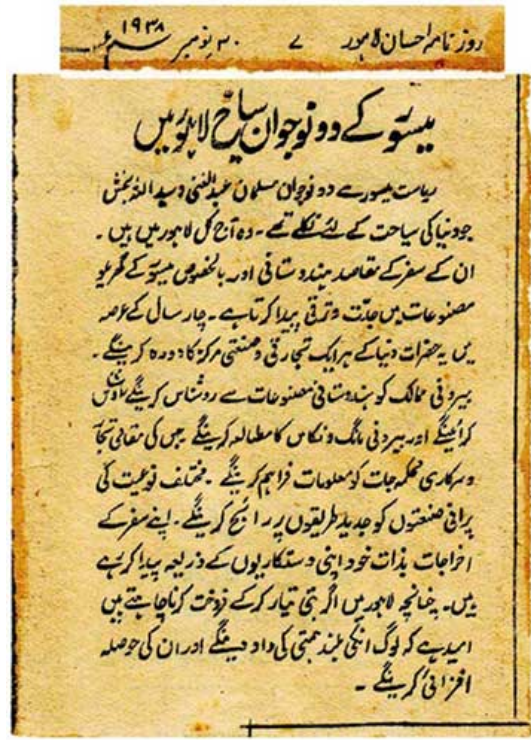 روزنامہ احسان لاہور ۷ ۳۰ نومبر ۱۹۳۸ء
میسور کے دو نوجوان سیاح لاہور میں
ریاست میسور سے دو نوجوان مسلمان عبدالغنی و سید اللہ بخش
جو دنیا کی سیاحت کے لئے نکلے تھے۔ وہ آج کل لاہور میں ہیں۔
ان کے سفر کے مقاصد ہندوستانی اور بالخصوص میسور کے گھریلو
مصنوعات میں جدت و ترقی پیدا کرتا ہے۔ چار سال کے عرصہ
میں یہ حضرات دنیا کے ہر ایک تجارتی و صنعتی مرکز کا دورہ کرینگے۔
بیرونی ممالک کو ہندوستانی مصنوعات سے روشناس کرینگے
کرائینگے اور بیرونی مانگ و نکاس کا مطالعہ کرینگے جس کی مقامی تجا
و سرکاری محکمہ جات کو معلومات فراہم کرینگے۔ مختلف نوعیت کی
پرانی صنعتوں کو جدید طریقوں پر رائج کرینگے۔ اپنے سفر کے
اخراجات بذات خود اپنی دستکاریوں کے ذریعہ پیدا کر رہے
ہیں۔ چنانچہ لاہور میں اگر بتی تیار کر کے فروخت کرنا چاہتے ہیں
امید ہے کہ لوگ انکی بلند ہمتی کی داد دینگے اور ان کی حوصلہ
افزائی کرینگے۔